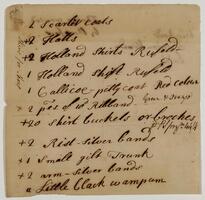 1 Scarlet Coats
+2 Hatts
+2 Holland Shirts Rufeld
1 Holland Shift Rufeld
1 Callicoe petty coat Red Colour
+20 Shirt buckels or
+2 Rist-Silver bands
+1 Small gilt Trunk
+2 arm-Silver bands
a Little Black wampum